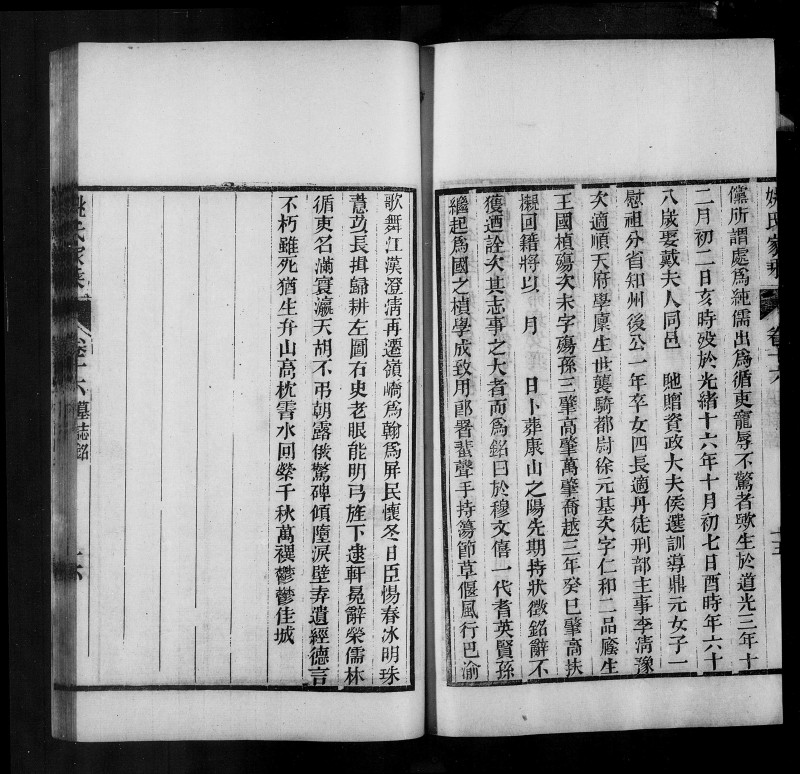 姚氏家乘 卷十六 十五
儻所謂處爲純儒出爲循吏寵辱不驚者歟生於道光三年十
二月初二日亥時歿於光緒十六年十月初七日酉時年六十
八歲娶戴夫人同邑 貤贈資政大夫侯選訓導鼎元女子一
慰祖分省知州後公一年卒女四長適丹徒刑部主事李清豫
次適順天府學廩生世襲騎都尉徐元基次字仁和二品廕生
王國楨殤次未字殤孫三肇高肇萬肇喬越三年癸巳肇高扶
櫬回籍將以 月 日卜葬康山之陽先期持狀徵銘辭不
獲迺詮次其志事之大者而爲銘曰於穆文僖一代耆英賢孫
繼起爲國之楨學成致用郎署蜚聲手持蕩節草偃風行巴渝
歌舞江漢澄清再遷嶺嶠爲翰爲屏民懷冬日臣惕春冰明珠
薏苡長揖歸耕左圖右史老眼能明弓旌下逮軒冕辭榮儒林
循吏名滿寰瀛天胡不弔朝露俄驚碑傾墮淚壁弆遺經德言
不朽雖死猶生弁山高枕霅水回縈千秋萬禩鬱鬱佳城
姚氏家乘 卷十六 墓誌銘 十六